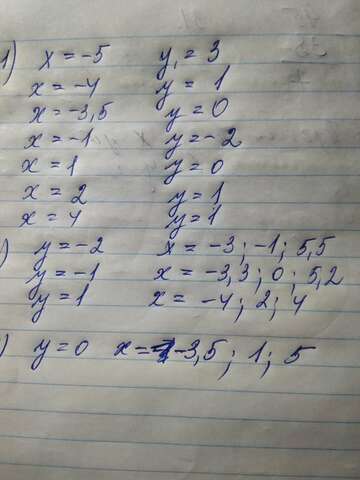 1) x = -5 y, = 3
x = -4 y = 1
x = -3,5 y = 0
x = -1 y = -2
x = 1 y = 0
x = 2 y = 1
x = 4 y = 1
) y = -2 x = -3; -1; 5,5
y = -1 x = -3,3; 0; 5,2
y = 1 x = -4; 2; 4
) y = 0 x = -3,5; 1; 5